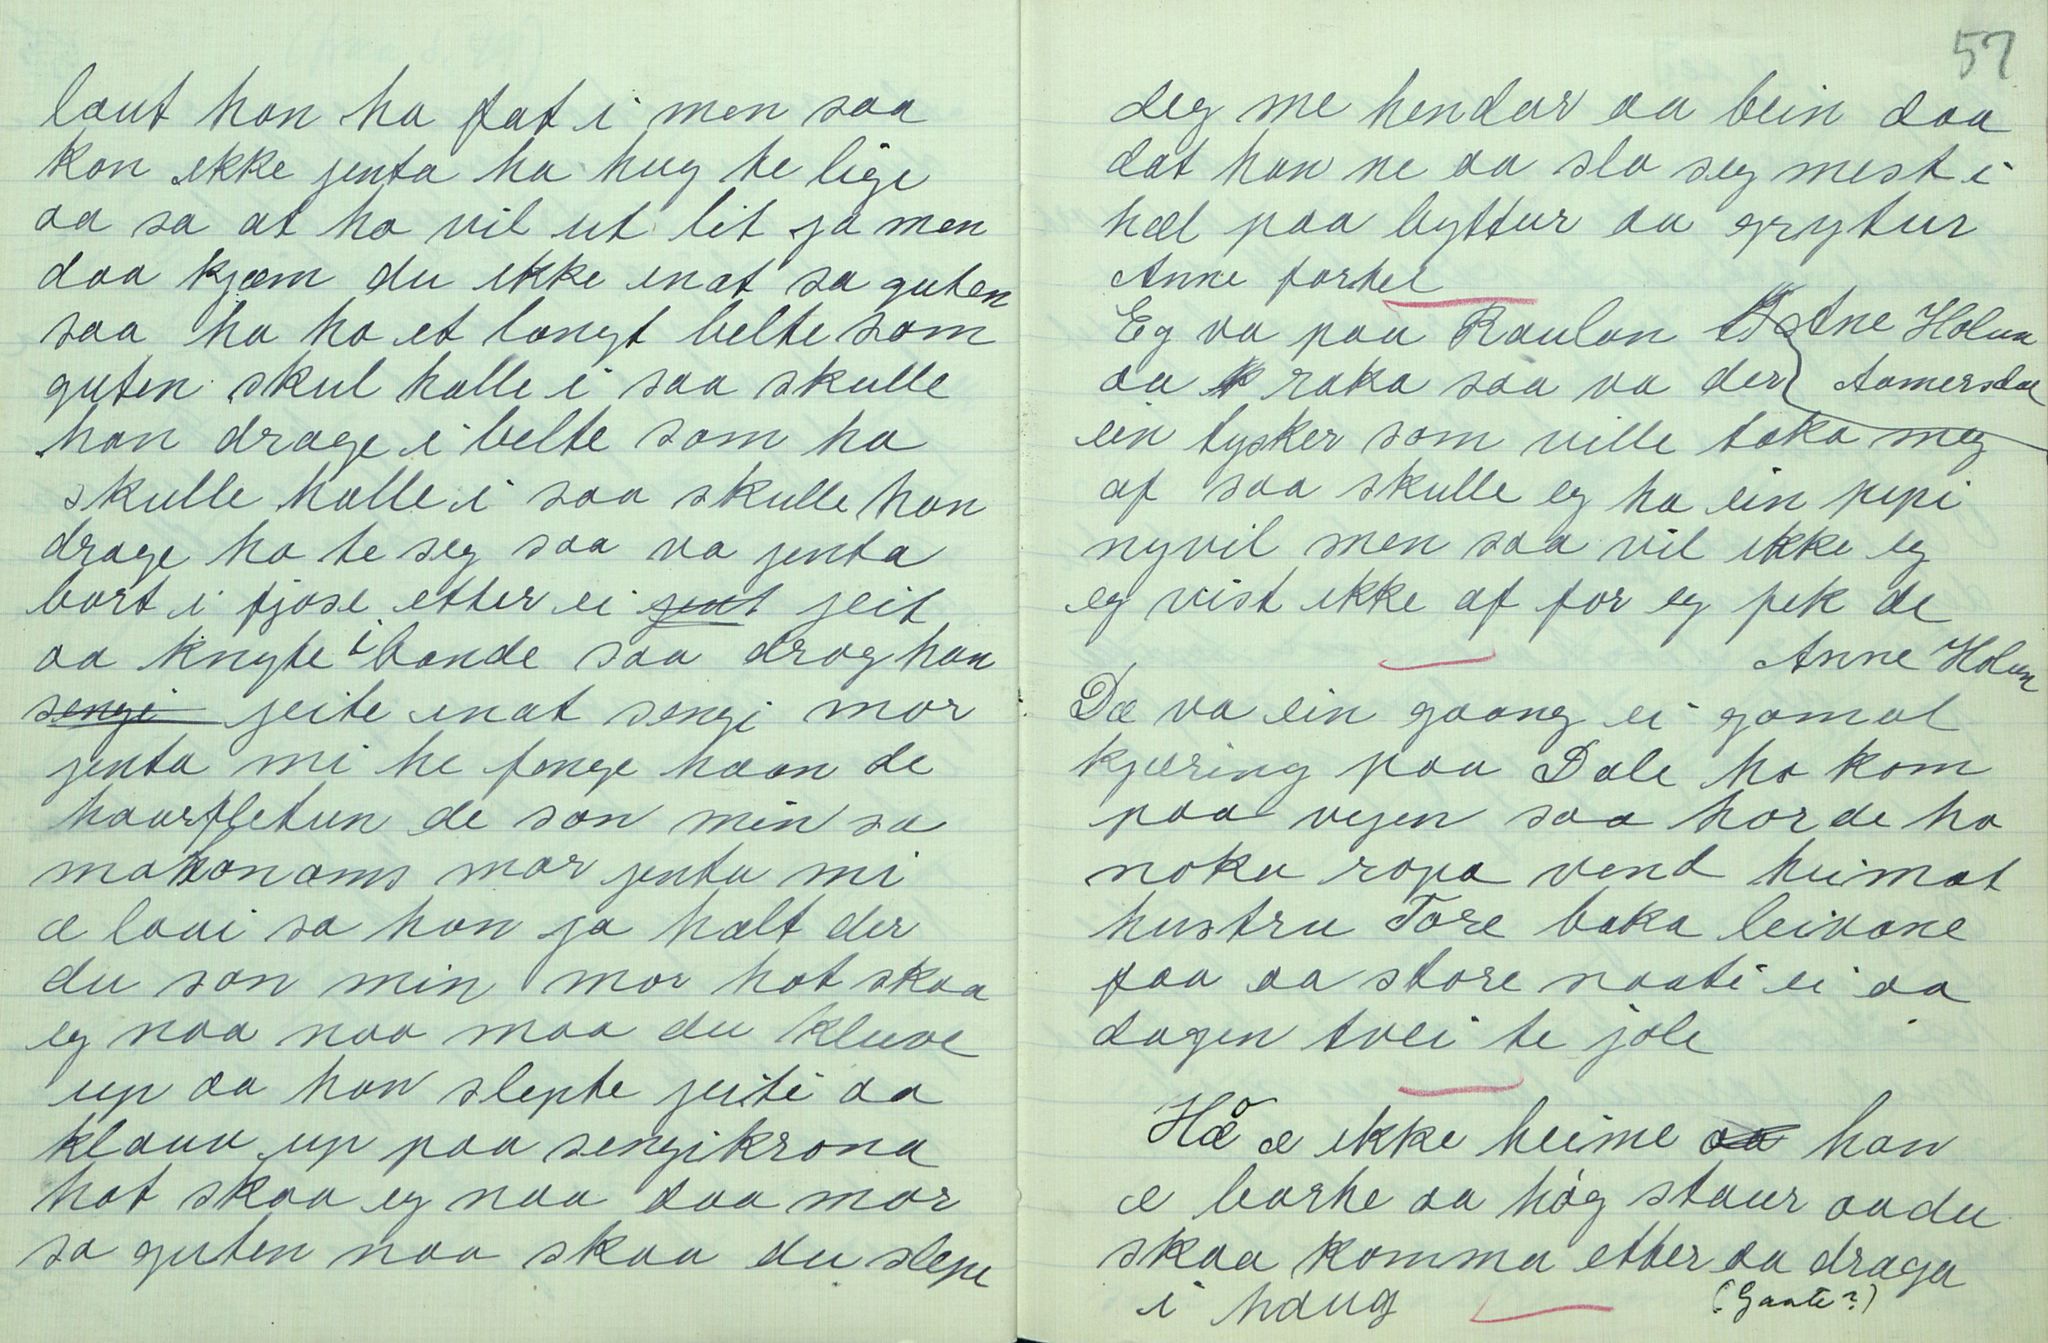 laut han ha fat i men saa
kon ikke jenta ha hug te lige
aa sa at ho vil ut lit ja men
daa kjæm du ikke inat sa guten
saa ha ho et langt belte som
guten skul halle i saa skulle
han drage i belte som ho
skulle halle i saa skulle han
drage ho te seg saa va jenta
bort i fjøse etter ei jent jeit
aa knyte i bande saa drog han
sengi jeite inat sengi mor
jenta mi he fenge haan de
haarfletun de son min sa
mor jenta mi
æ laai sa han ja hælt der
du son min mor hot skaa
eg naa naa maa du kluve
up aa han slepte jeiti aa
klauv up paa sengikrona
hot skaa eg naa daa mor
sa guten naa skaa du slepe
57
deg me hendar aa bein daa
dat han ne aa slo seg mest i
hel paa byttur aa grytur
Anne fortel
Eg va paa Raulan Ane Holum
aa raka saa va der Aamersda
ein tysker som ville taka meg
af saa skulle eg ha ein pepi
nyvil men saa vil ikke eg
eg vist ikke af for eg fek de
Anne Holum
Dæ va ein gaang ei gamal
kjæring paa Dale ho kom
paa vegen saa horde ho
noka ropa vend heimat
hustru Tore baka leivane
faa aa store naati ei aa
dagen tvei te jole
æ ikke heime aa han
æ barke aa høg staur aa du
skaa komma etter aa draga
i haug (Gaate?)